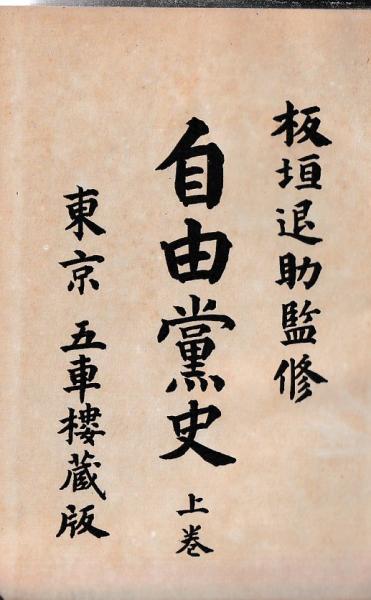 板垣退助監修
自由黨史 上巻
東京 五車樓蔵版